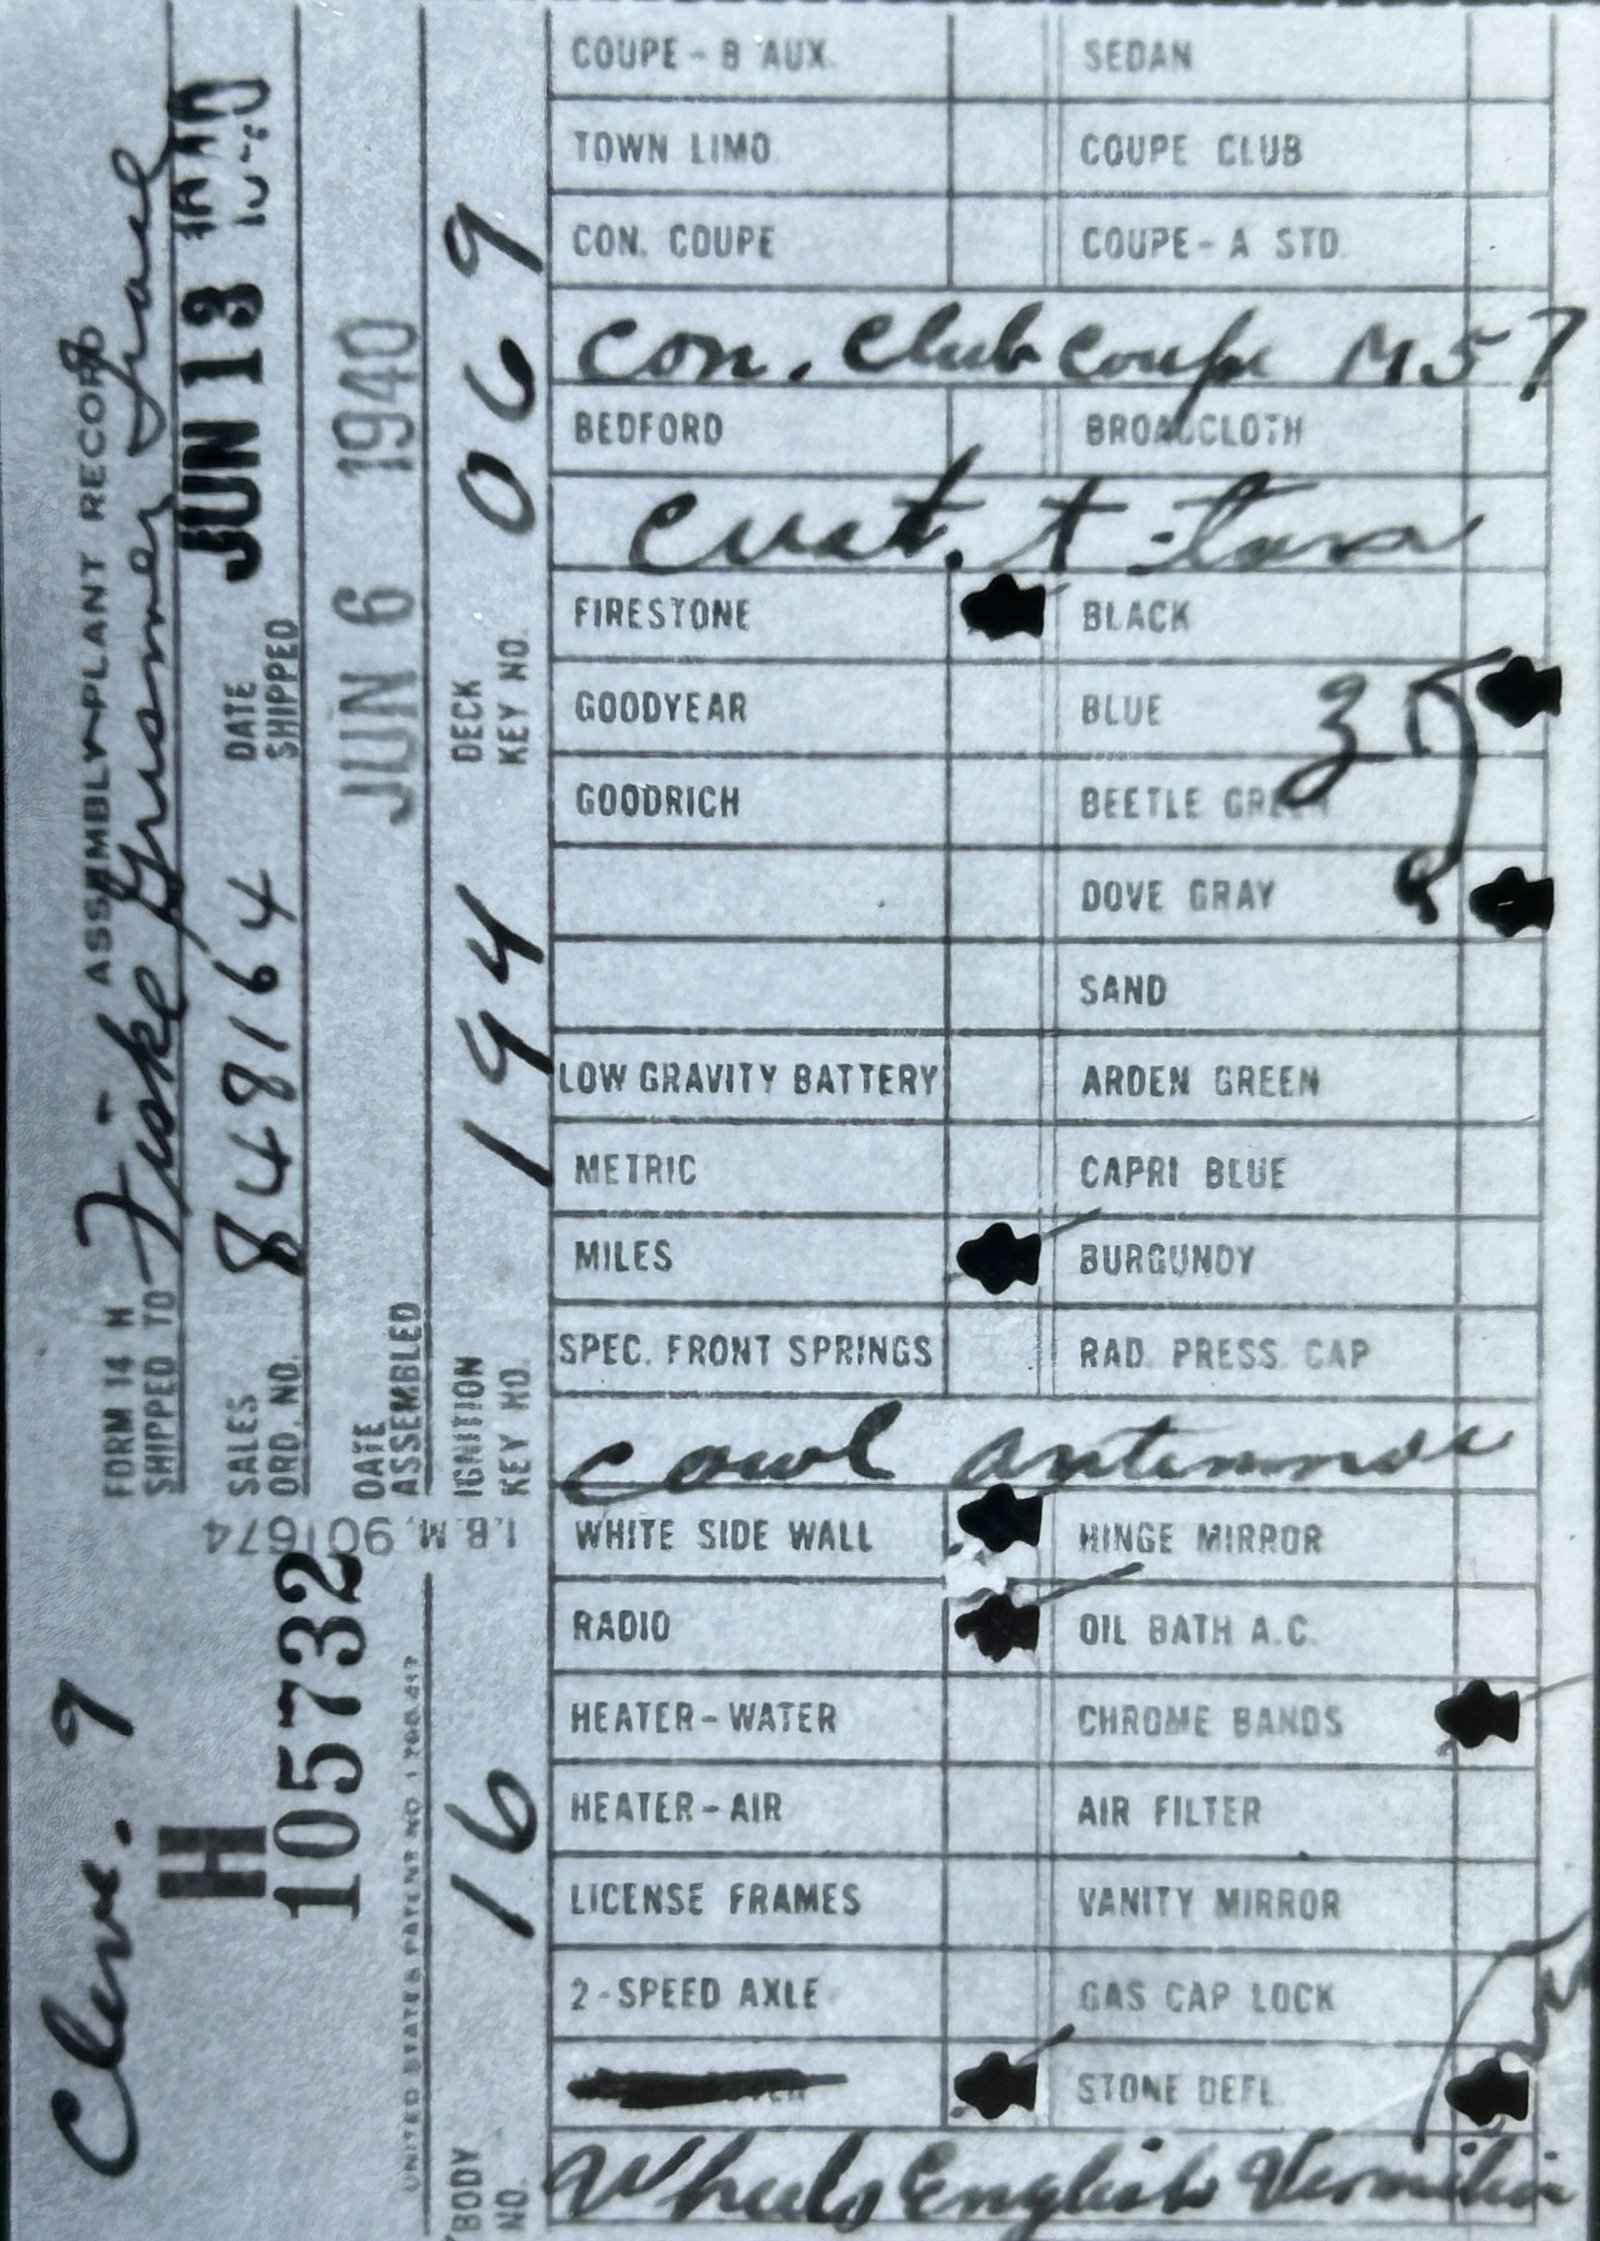 FORM 14 H ASSEMBLY-PLANT RECORD
SHIPPED TO Fiske
SALES ORD. NO. 848164
DATE SHIPPED JUN 13
DATE ASSEMBLED JUN 6 1940
IGNITION KEY NO. 1944
DECK KEY NO. 069
Clev. 9
H
105732
I.B.M. 901674
UNITED STATES PATENT NO.
BODY NO. 16
COUPE - B AUX. SEDAN
TOWN LIMO COUPE CLUB
CON. COUPE COUPE - A STD.
Con. Club Coupe M57
BEDFORD BROADCLOTH
Cust. t-tan
FIRESTONE BLACK
GOODYEAR BLUE 35
GOODRICH BEETLE GREEN
DOVE GRAY
SAND
LOW GRAVITY BATTERY ARDEN GREEN
METRIC CAPRI BLUE
MILES BURGUNDY
SPEC. FRONT SPRINGS RAD. PRESS. CAP
Cowl antennae
WHITE SIDE WALL HINGE MIRROR
RADIO OIL BATH A.C.
HEATER - WATER CHROME BANDS
HEATER - AIR AIR FILTER
LICENSE FRAMES VANITY MIRROR
2-SPEED AXLE GAS CAP LOCK
STONE DEFL.
Wheels English Vermilion